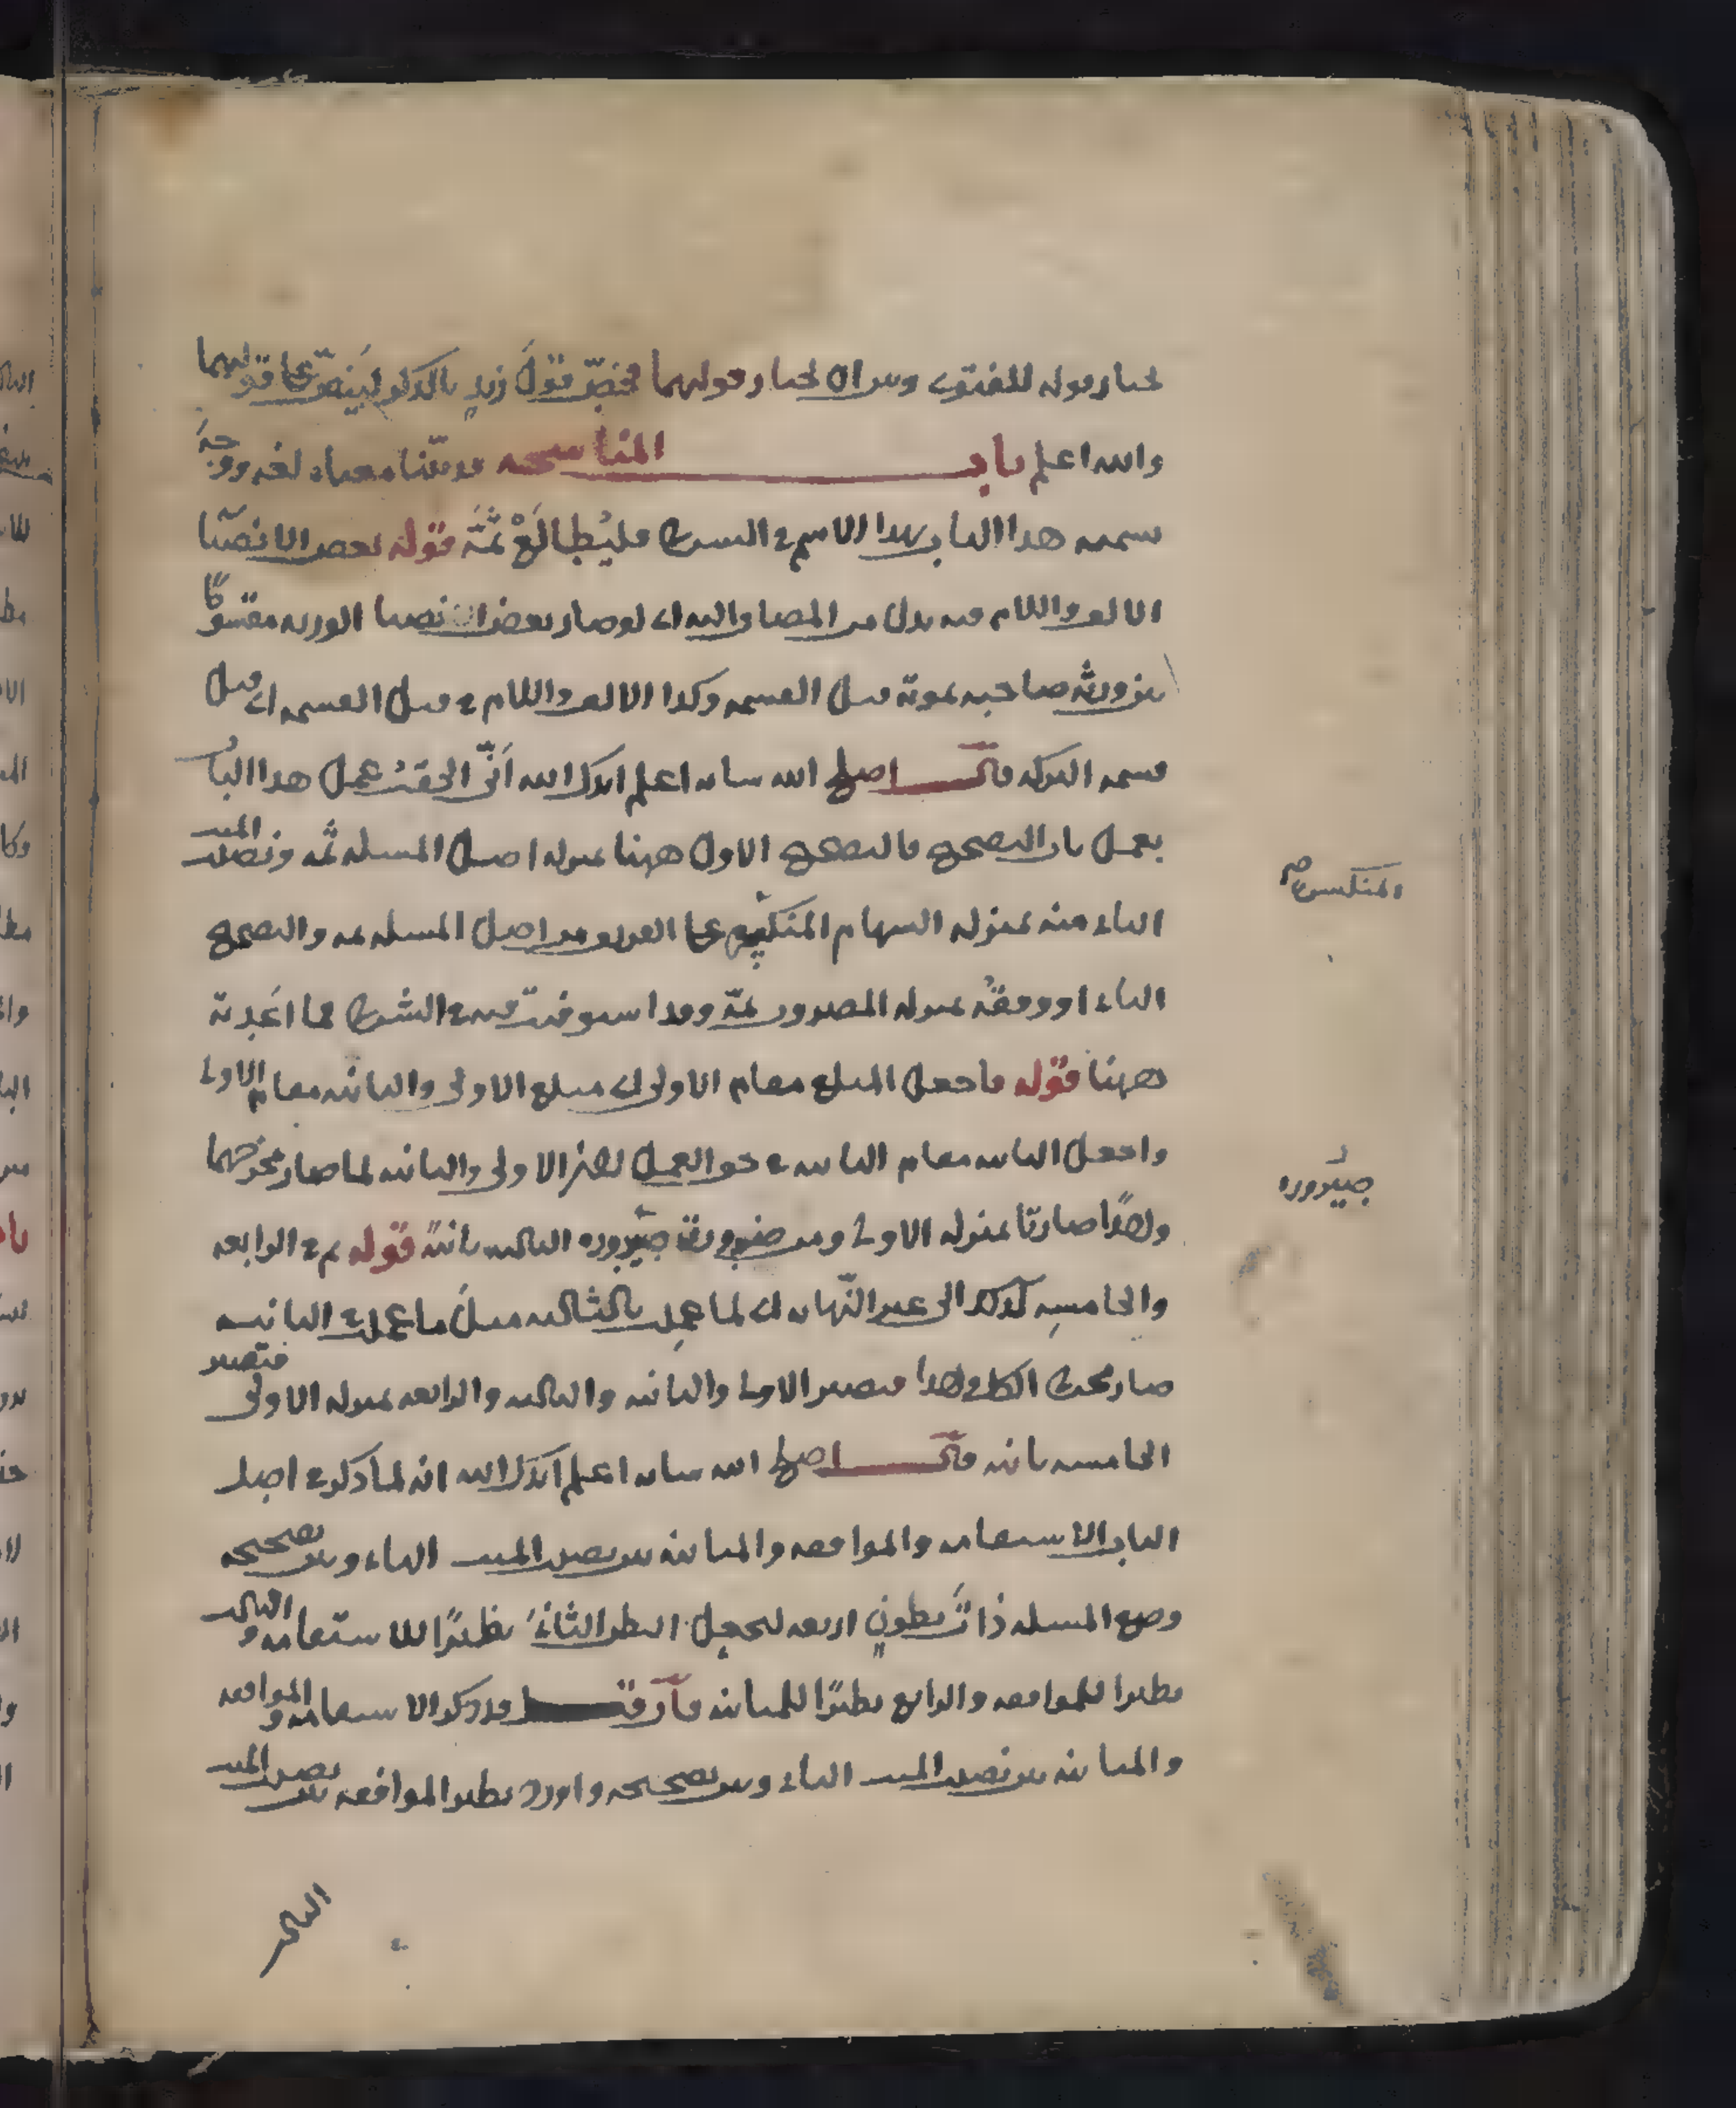 يختار قوله للفتوى وبين ان يختار قوليهما فخصّ قولَ زيدٍ بالذكر لينصّ على قوليهما
والله اعلم باب المناسخه قد بيّنا معناه لغه ووجهَ
تسميه هذا الباب بهذا الاسم في الشرح فليُطالَعْ ثمَّةَ قوله بعض الانصبا
الالف واللام فيه بدل من المضاف اليه اي لو صار بعض انصبا الورثه مقسومًا
بين ورثه صاحبه بموته قبل القسمه وكذا الالف واللام في قبل القسمه اي قبل
قسمه التركه قال اصلح الله شانه اعلم ايدك الله انّى الحقتُ عمل هذا الباب
بعمل باب التصحيح فالتصحيح الاول ههنا بمنزله اصل المسله ثمه ونصيب الميت
الثاني منه بمنزله السهام المنكسره على الفريق من اصل المسله ثمه والتصحيح
الثاني او وفقُه بمنزله المضروب ثمّه وقد استوفيت فيه في الشرح فما اعَدته
ههنا قوله فاجعل المبلغ مقام الاولى اي مبلغ الاولى والثانيه مقام الاولى
واجعل الثالثه مقام الثانيه في حق العمل لان الاولى والثانيه لما صار مخرجهما
واحدًا صارتا بمنزله الاولى ومن ضرورته صيروره الثالثه ثانيهً قوله ثم في الرابعه
والخامسهِ كذلك الى غير النّهايه اي لما عمِل بالثالثه مثلَ ما عمل في الثانيه
صار مخرج الكل واحدا فتصير الاولى والثانيه والثالثه والرابعه بمنزله الاولى فتصير
الخامسه ثانيه قال اصلح الله شانه اعلم ايدك الله انه لما ذكر في اصل
الباب الاستقامه والموافقه والمباينه بين نصيب الميت الثاني وبين تصحيحه
وضع المسله ذاتَ بطونٍ اربعه ليجعل البطن الثانيَ نظيرًا للاستقامه والثالث
نظيرا للموافقه والرابع نظيرًا للمباينه فان قـ قد ذكر الاستقامه والموافقه
والمباينه بين نصيب الميت الثاني وبين تصحيحه واورد نظير الموافقه بين نصيب الميت
المنكسره صح
صيروره
الثالث